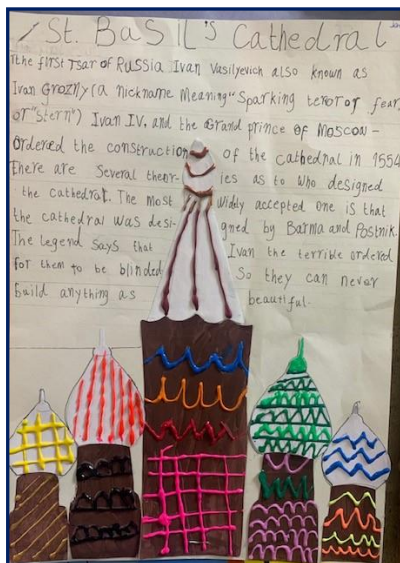 St. BaSil's Cathedral
The first Tsar of Russia Ivan Vasilyevich also known as
Ivan Grozny (a nickname Meaning "Sparking teror of fear
or "stern") Ivan IV, and the Grand prince of Moscow -
Ordered the construction of the cathedral in 1554
There are Several theories as to who designed
the cathedral. The most widly accepted one is that
the cathedral was designed by Barma and Postnik.
The legend says that Ivan the terrible ordered
for them to be blinded So they can never
build anything as beautiful.